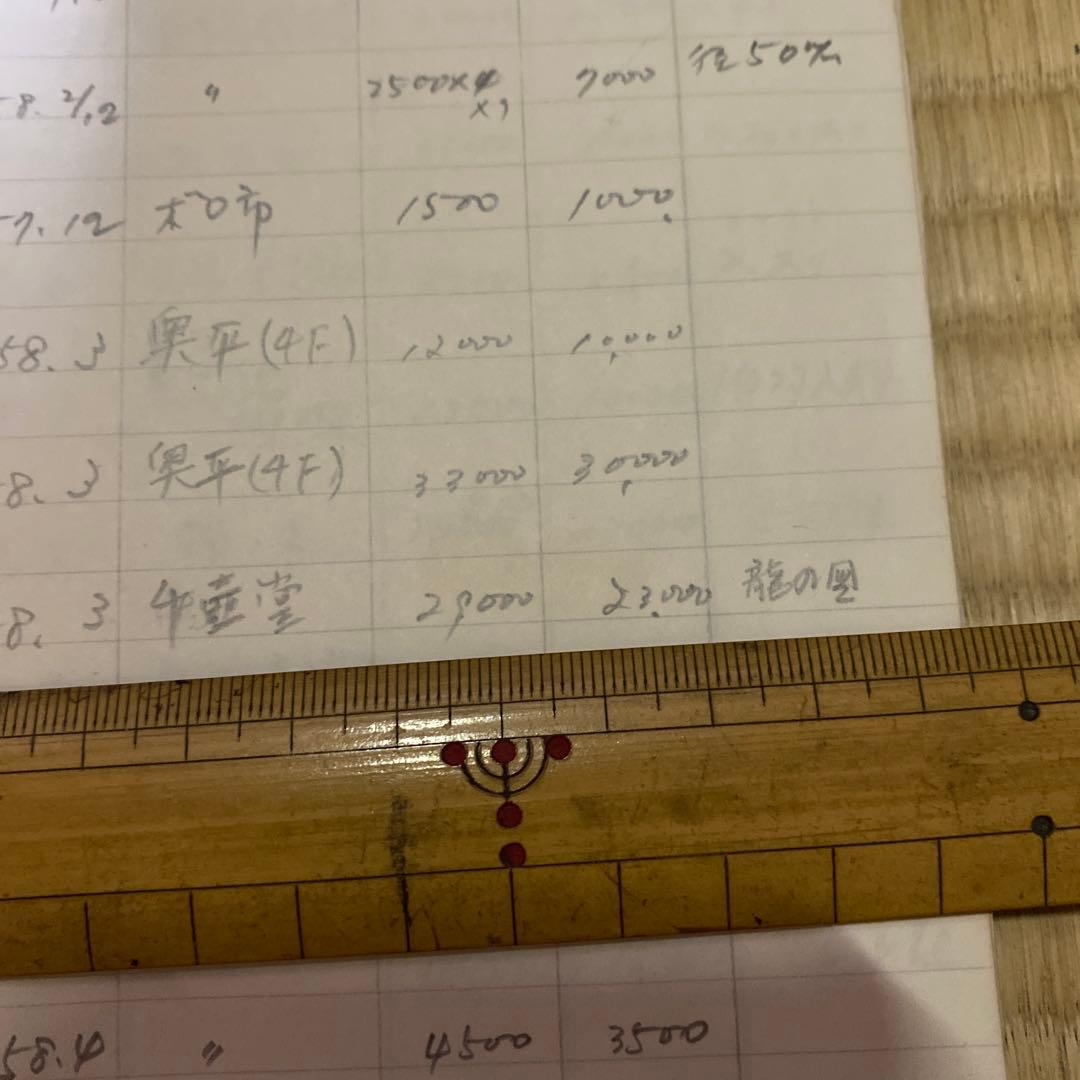 8. 2/12 〃 2500×4 ×3 7000 径50%
7.12 1500 1000
58.3 奥平(4F) 12000 10,000
8.3 奥平(4F) 33000 30,000
8.3 堂 29000 23,000 龍の図
58.4 〃 4500 3500